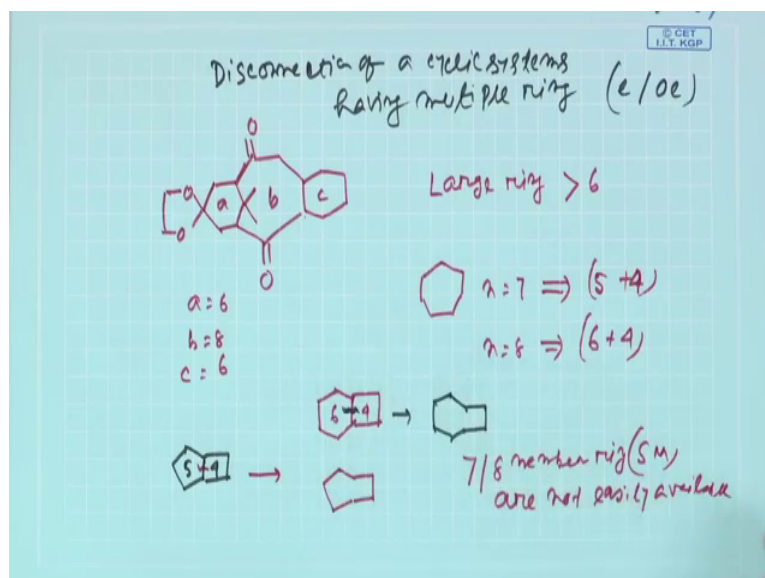 © CET
I.I.T. KGP
Disconnection of a cyclic systems
having multiple ring (e/oe)
O
O
O
a b c
O
Large ring > 6
a = 6
b = 8
c = 6
n = 7 ⇒ (5+4)
n = 8 ⇒ (6+4)
6 4 →
5 4 →
7/8 member ring (SM)
are not easily available